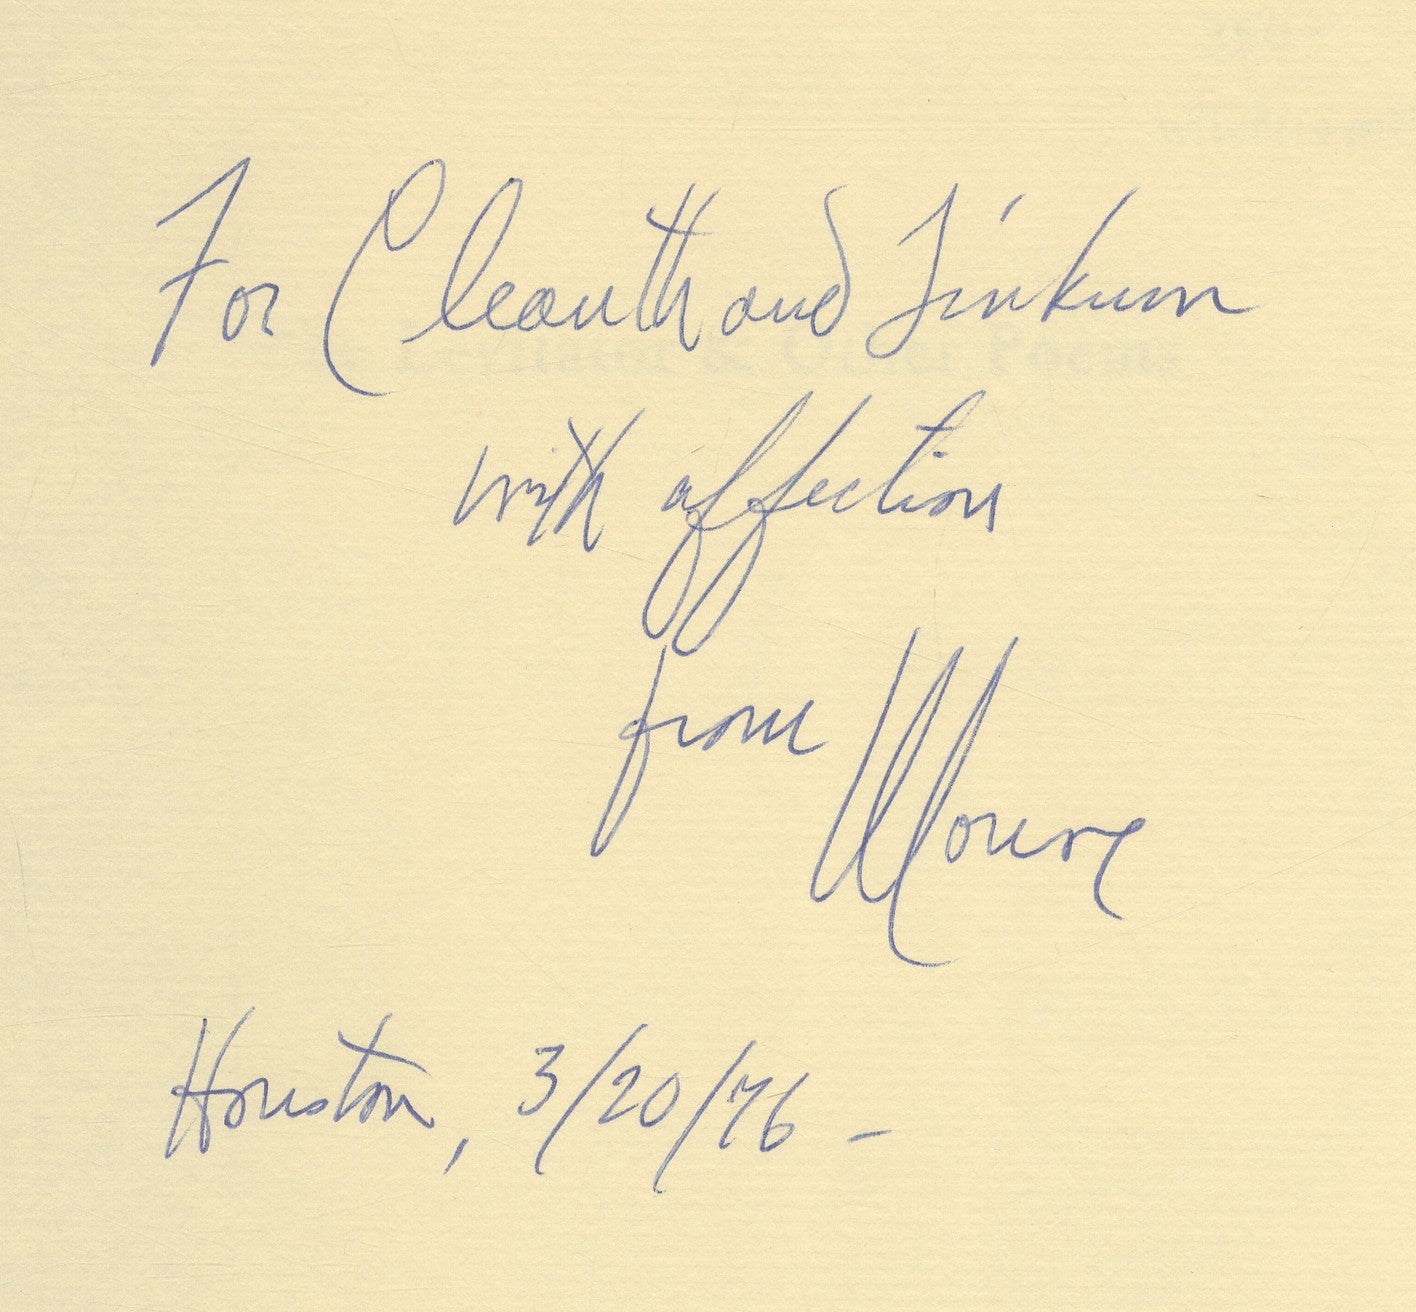 For Cleanth and Tinkum
with affection
from Monroe
Houston, 3/20/76 –
& Other Poems